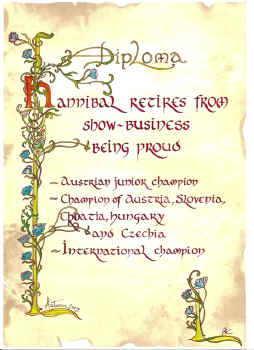 Diploma
Hannibal retires from
show-business
being proud
- Austrian junior champion
- Champion of Austria, Slovenia,
Croatia, Hungary
and Czechia
- International champion
Autumn